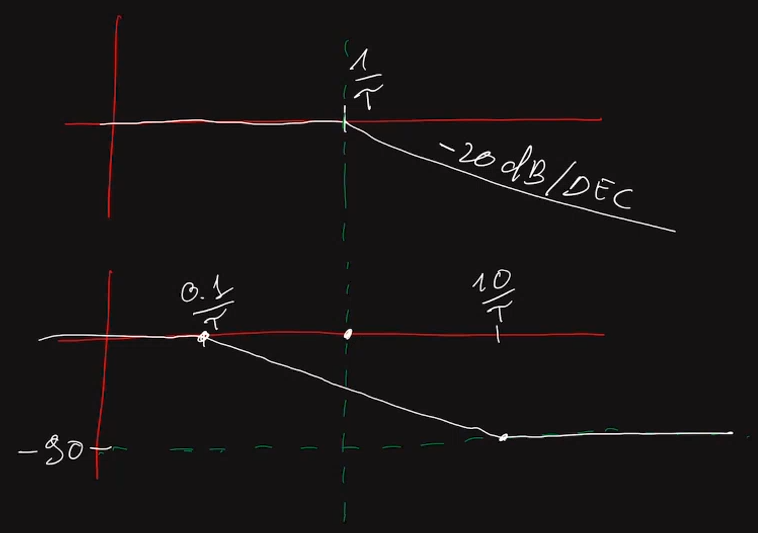 1/τ
-20 dB/DEC
0.1/τ
10/τ
-90